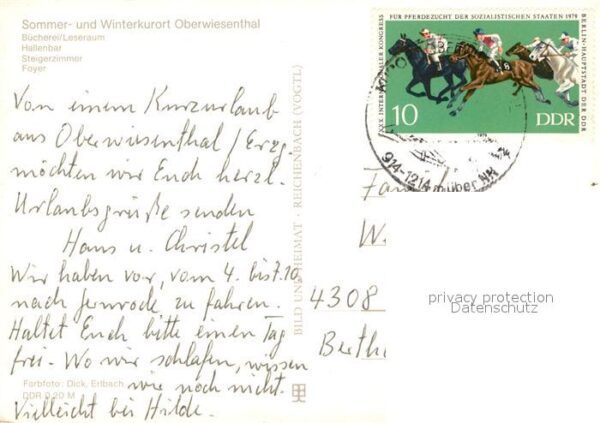 Sommer- und Winterkurort Oberwiesenthal
Bücherei/Leseraum
Hallenbar
Steigerzimmer
Foyer
Von einem Kurzurlaub
aus Oberwiesenthal / Erzg.
möchten wir Euch herzl.
Urlaubsgrüße senden
Hans u. Christel
Wir haben vor, vom 4. bis 7.10.
nach Gernrode zu fahren.
Haltet Euch bitte einen Tag
frei. Wo wir schlafen, wissen
wir noch nicht.
Vielleicht bei Hilde.
Farbfoto: Dick, Erlbach
DDR 0,20 M
BILD UND HEIMAT · REICHENBACH (VOGTL)
XXX INTERNATIONALER KONGRESS
FÜR PFERDEZUCHT DER SOZIALISTISCHEN STAATEN 1979
BERLIN-HAUPTSTADT DER DDR
10
DDR
914-1214 m über NN
Fa
W
4308
Berth
privacy protection
Datenschutz